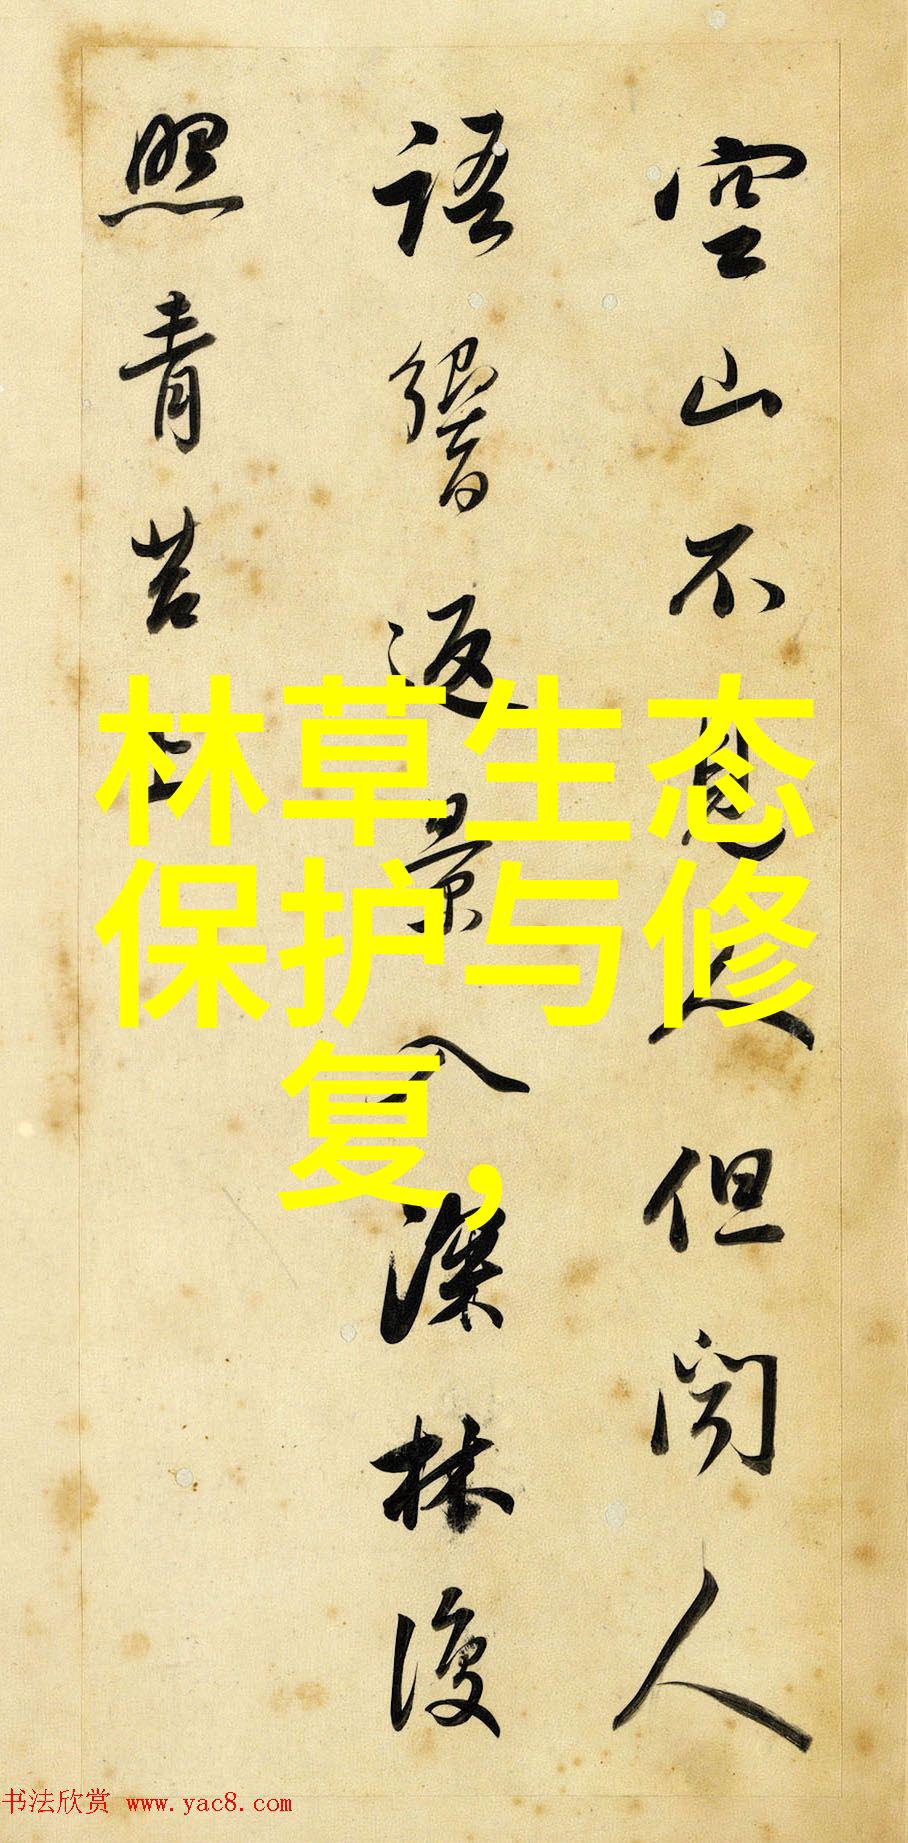 空山不見人但聞人
語響返景入深林復
照青苔上
林草生态
保护与修
复,
书法欣赏 www.yac8.com